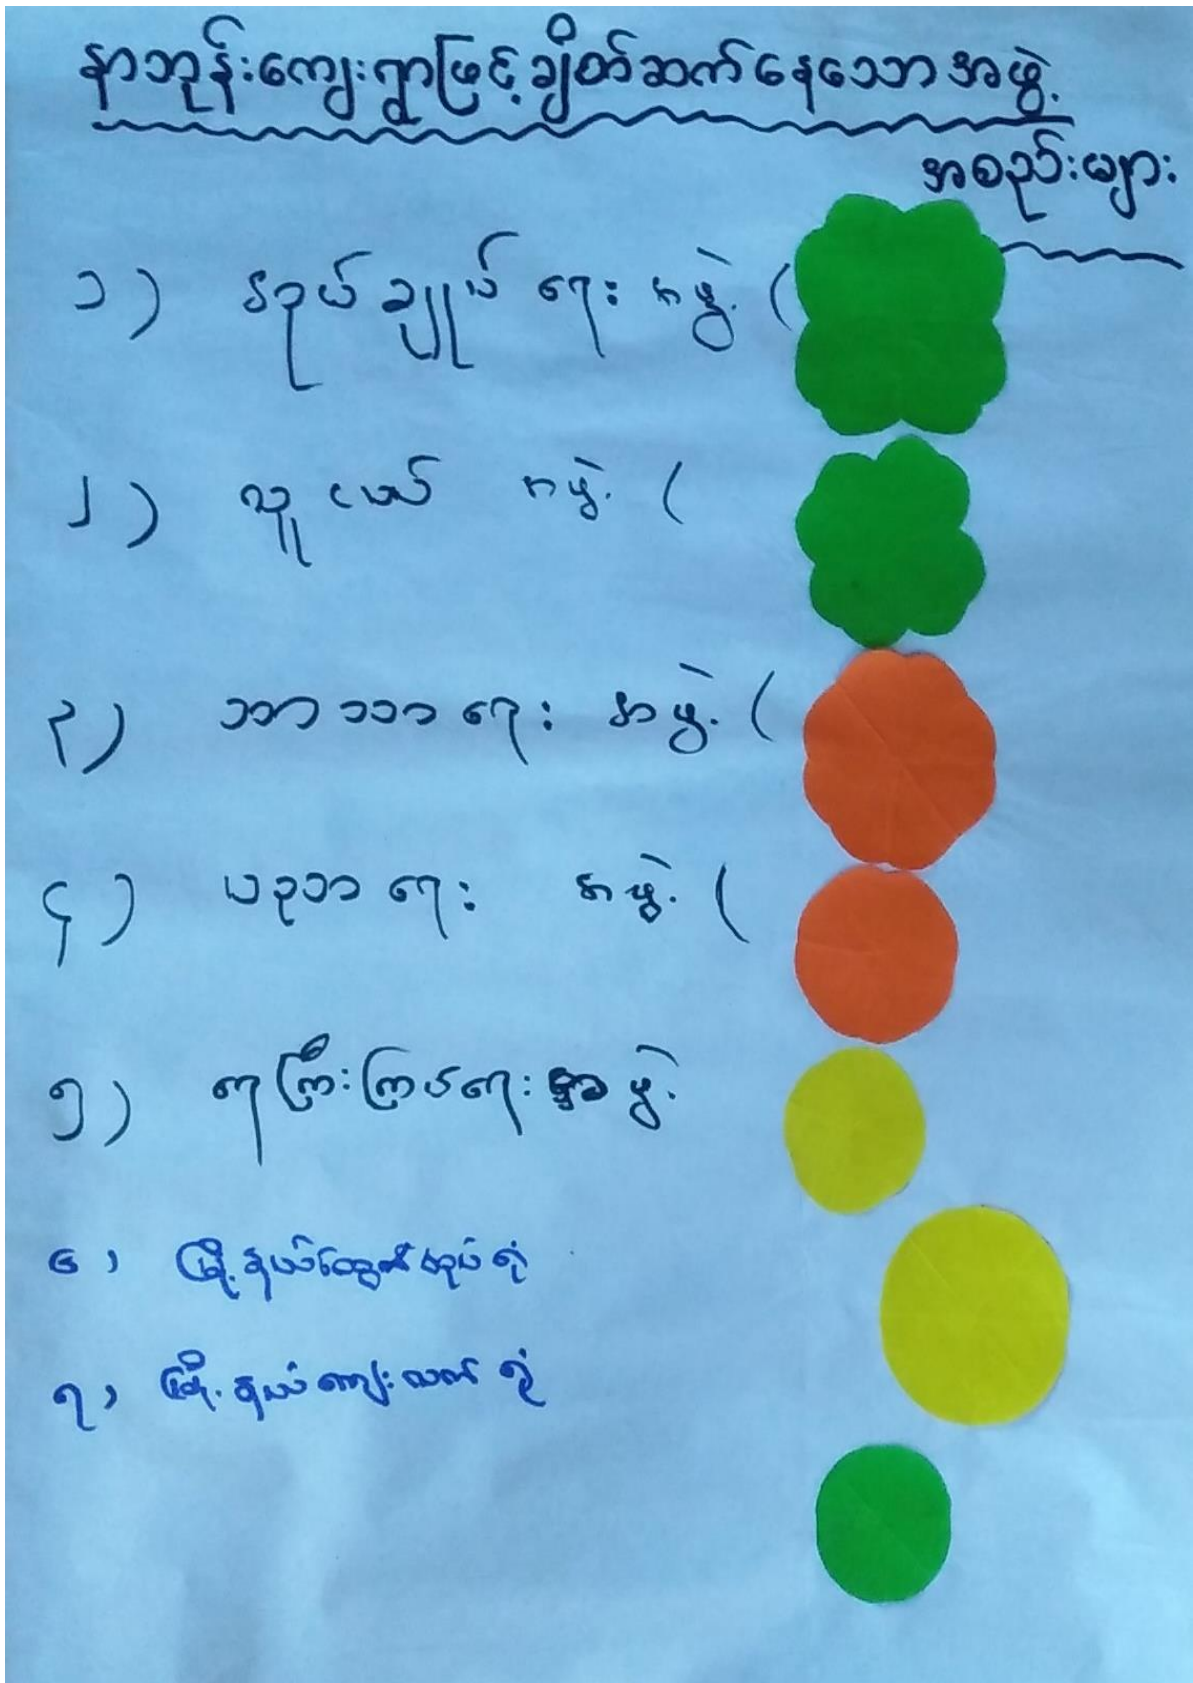 နာဘုန်းကျေးရွာဖြင့်ချိတ်ဆက်နေသောအဖွဲ့
အစည်းများ
၁) အုပ်ချုပ်ရေး အဖွဲ့ (
၂) လူငယ် အဖွဲ့ (
၃) ဘာသာရေး အဖွဲ့ (
၄) ပညာရေး အဖွဲ့ (
၅) ရာကြီးကြပ်ရေး အဖွဲ့
၆) မြို့နယ်ထွေအုပ်ရုံး
၇) မြို့နယ်ကျေးလက်ရုံး